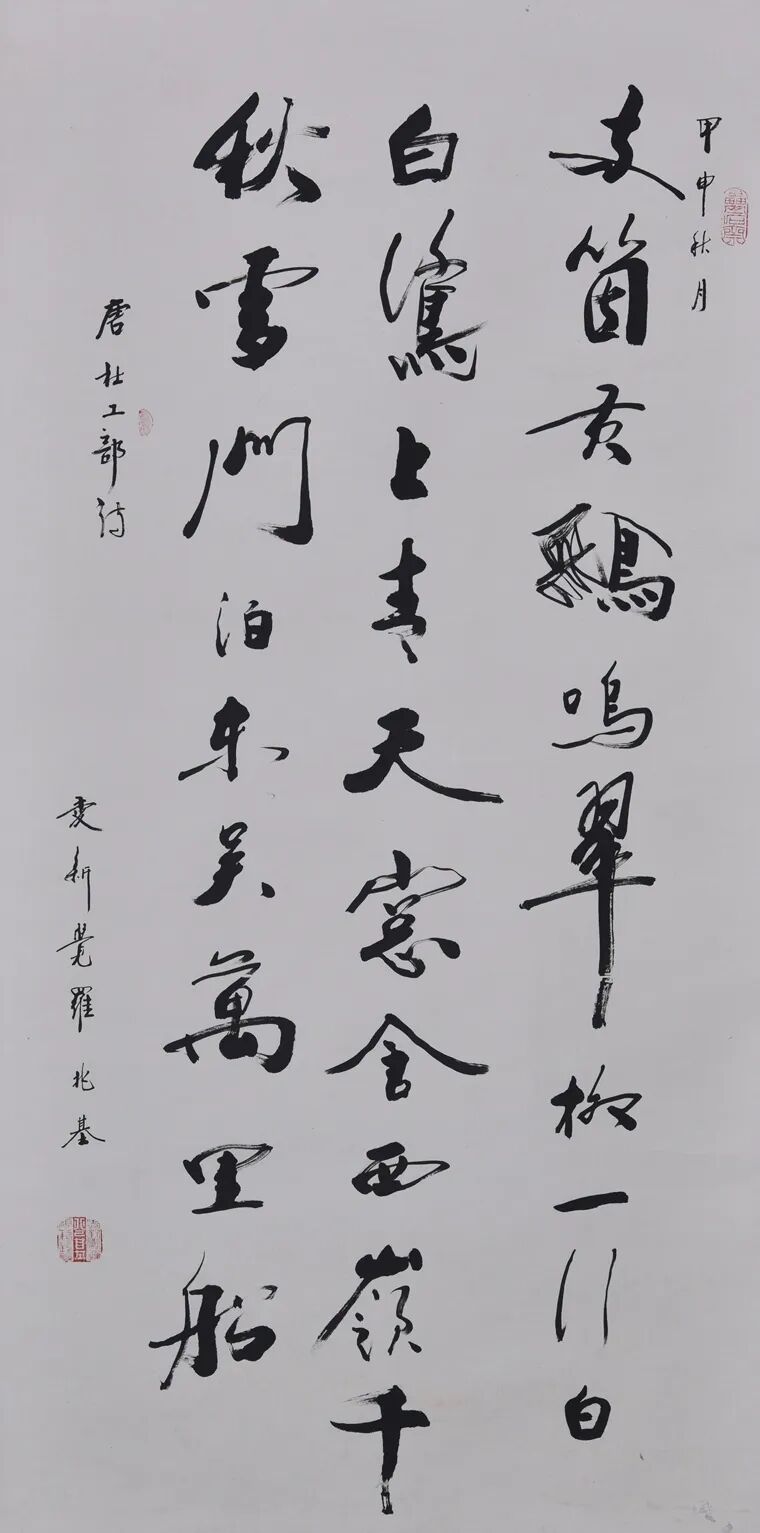 甲申秋月
箇黄鸝鳴翠柳一行白
白鷺上青天窓含西嶺千
秋雪門泊東吴萬里船
唐杜工部詩
愛新覺羅兆基